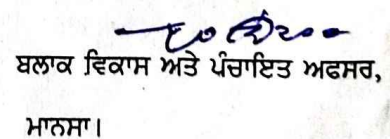 ਬਲਾਕ ਵਿਕਾਸ ਅਤੇ ਪੰਚਾਇਤ ਅਫਸਰ,
ਮਾਨਸਾ।